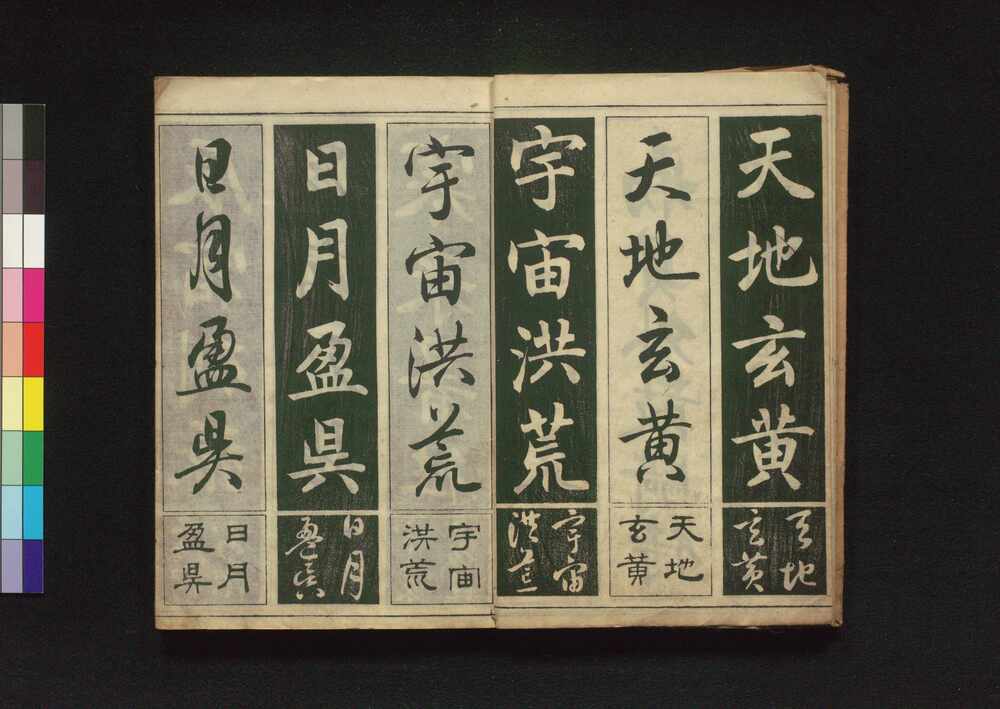 天地玄黄
天地
玄黄
天地玄黄
天地
玄黄
宇宙洪荒
宇宙
洪荒
宇宙洪荒
宇宙
洪荒
日月盈昃
日月
盈昃
日月盈昃
日月
盈昃